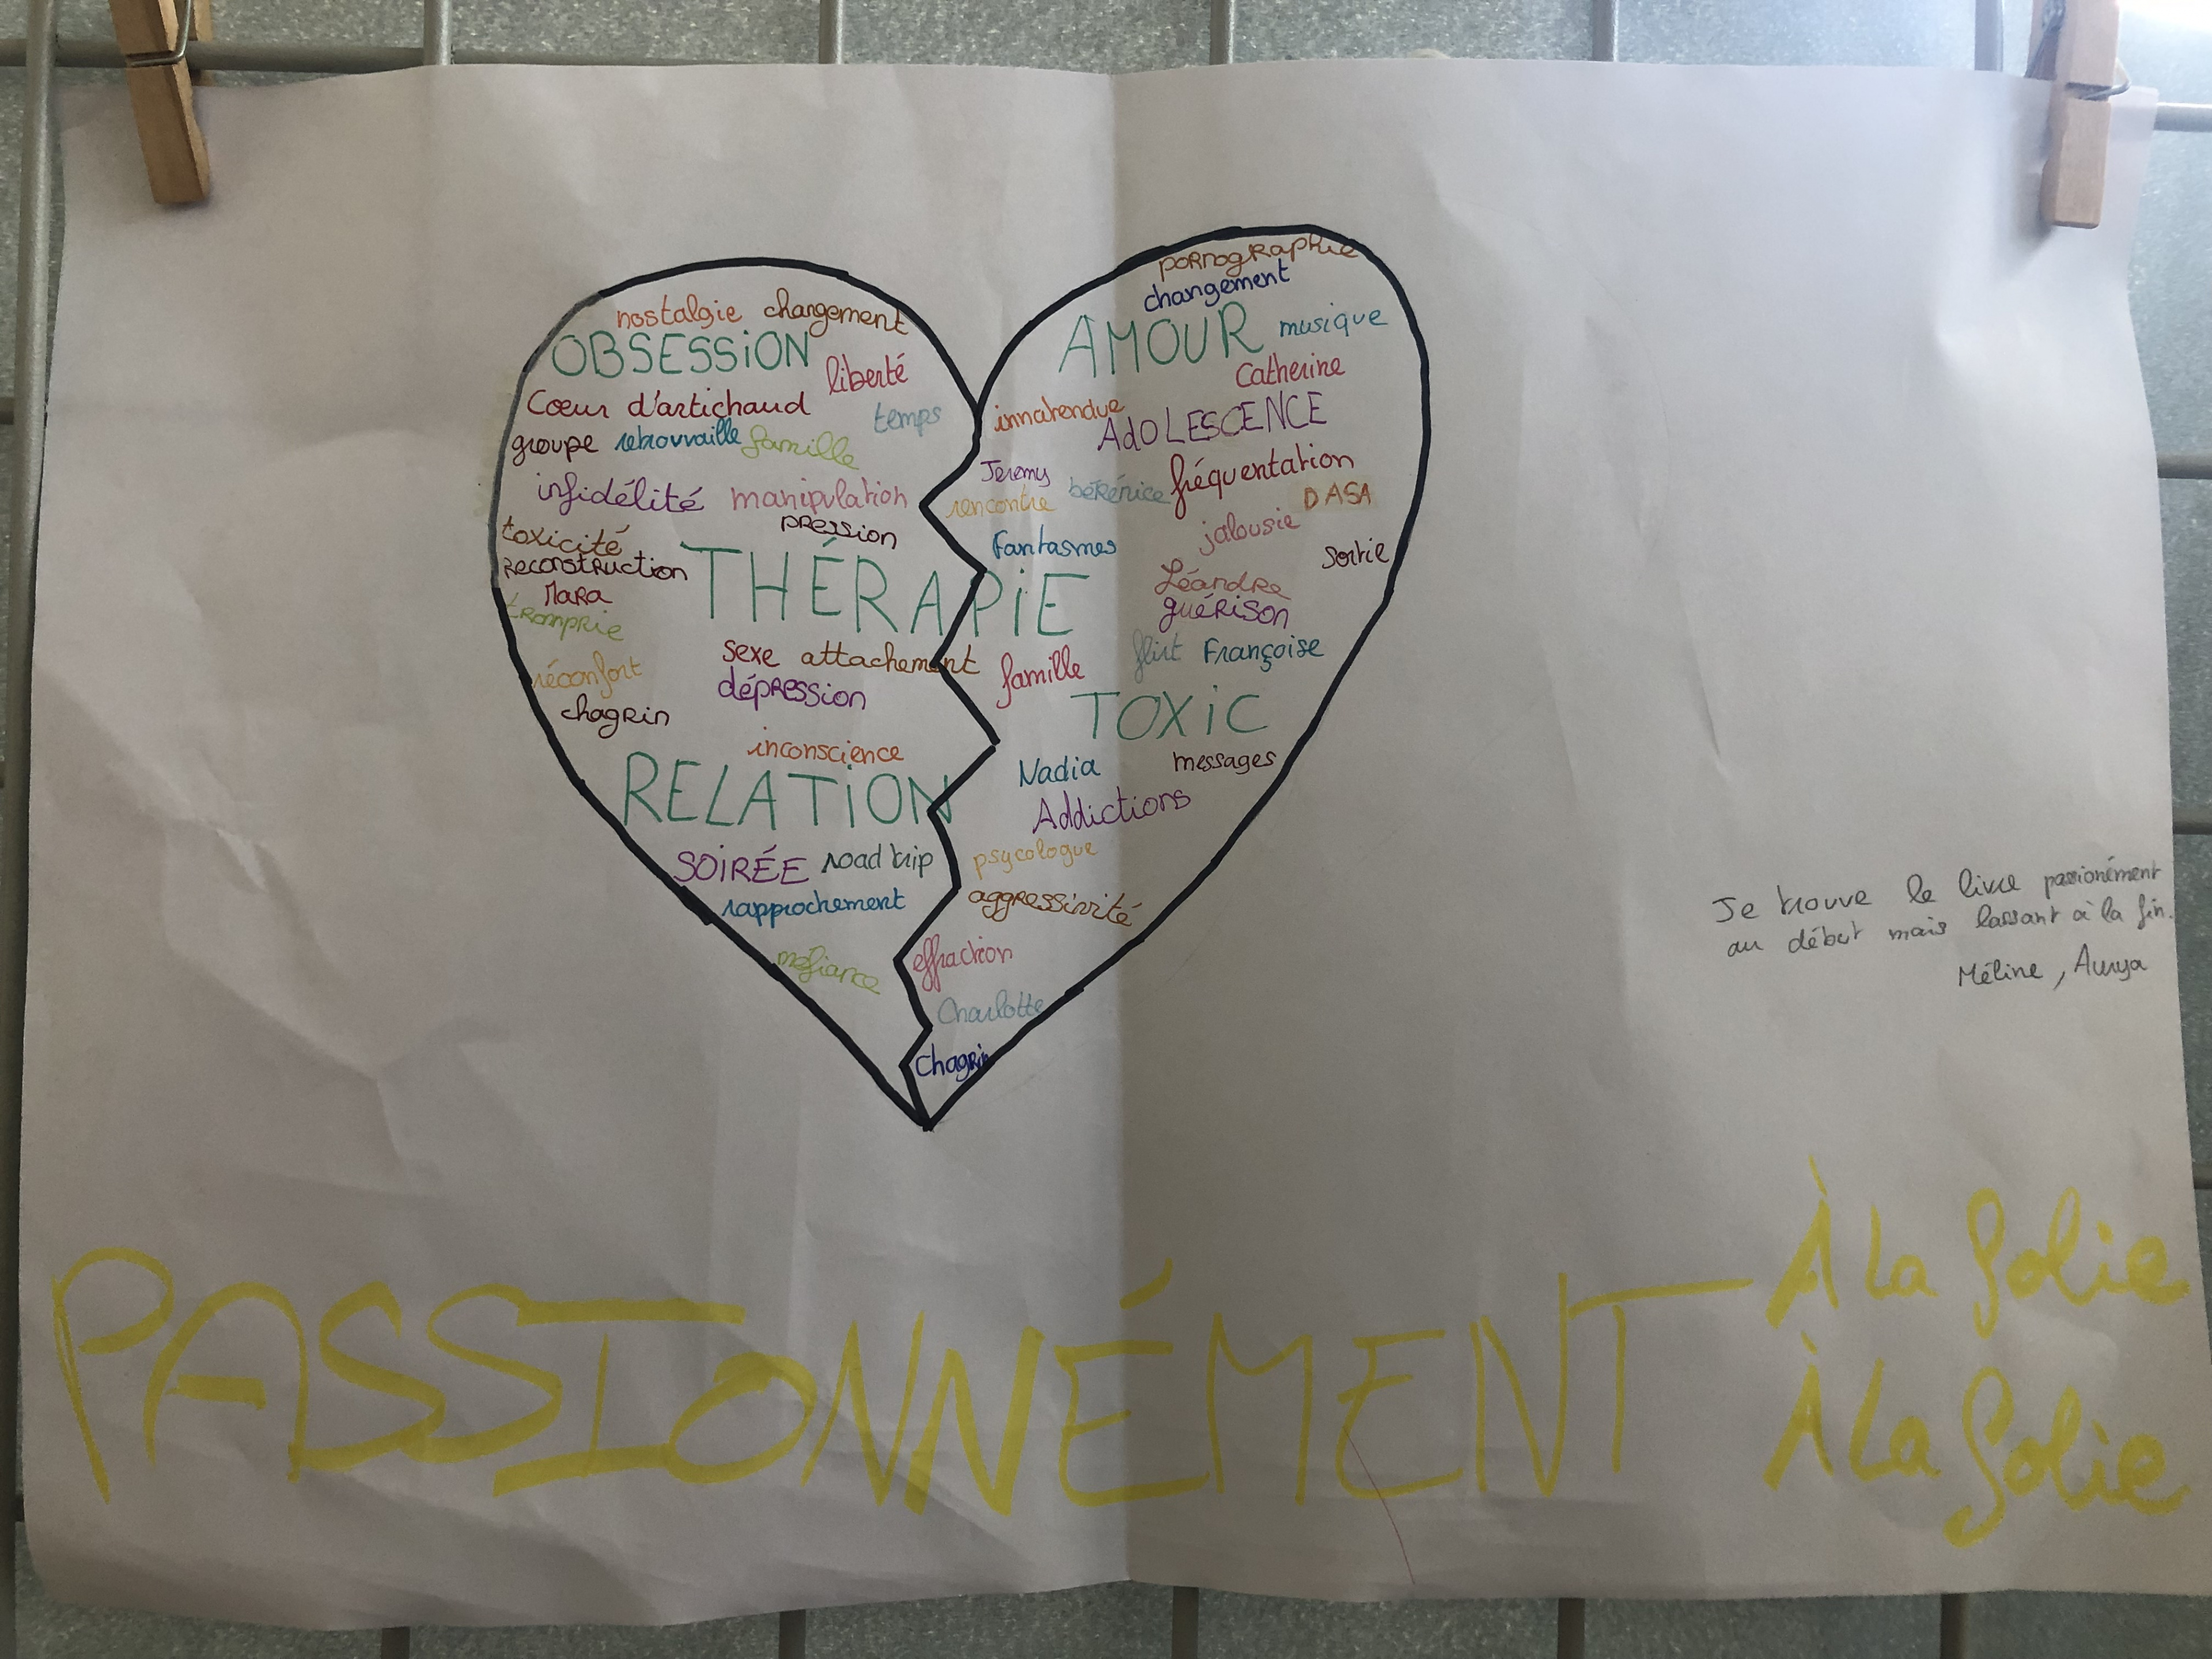 nostalgie changement
OBSESSiON
liberté
Cœur d'artichaud
temps
groupe retrouvaille famille
infidélité manipulation
pression
toxicité
reconstruction
Mara
tromprie
réconfort
chagrin
THÉRAPiE
sexe attachement
dépression
inconscience
RELATiON
SOiRÉE road trip
rapprochement
méfiance
pornographie
changement
AMOUR musique
Catherine
innatendue
AdOLESCENCE
Jeremy
rencontre bérénice fréquentation
DASA
jalousie
Fantasmes
sortie
Léandre
guérison
flirt Françoise
famille
TOXiC
Nadia messages
Addictions
psycologue
aggressivité
effraction
Charlotte
Chagrin
Je trouve le livre passionément
au début mais lassant à la fin.
Méline,
PASSIONNÉMENT
À La folie
À La folie